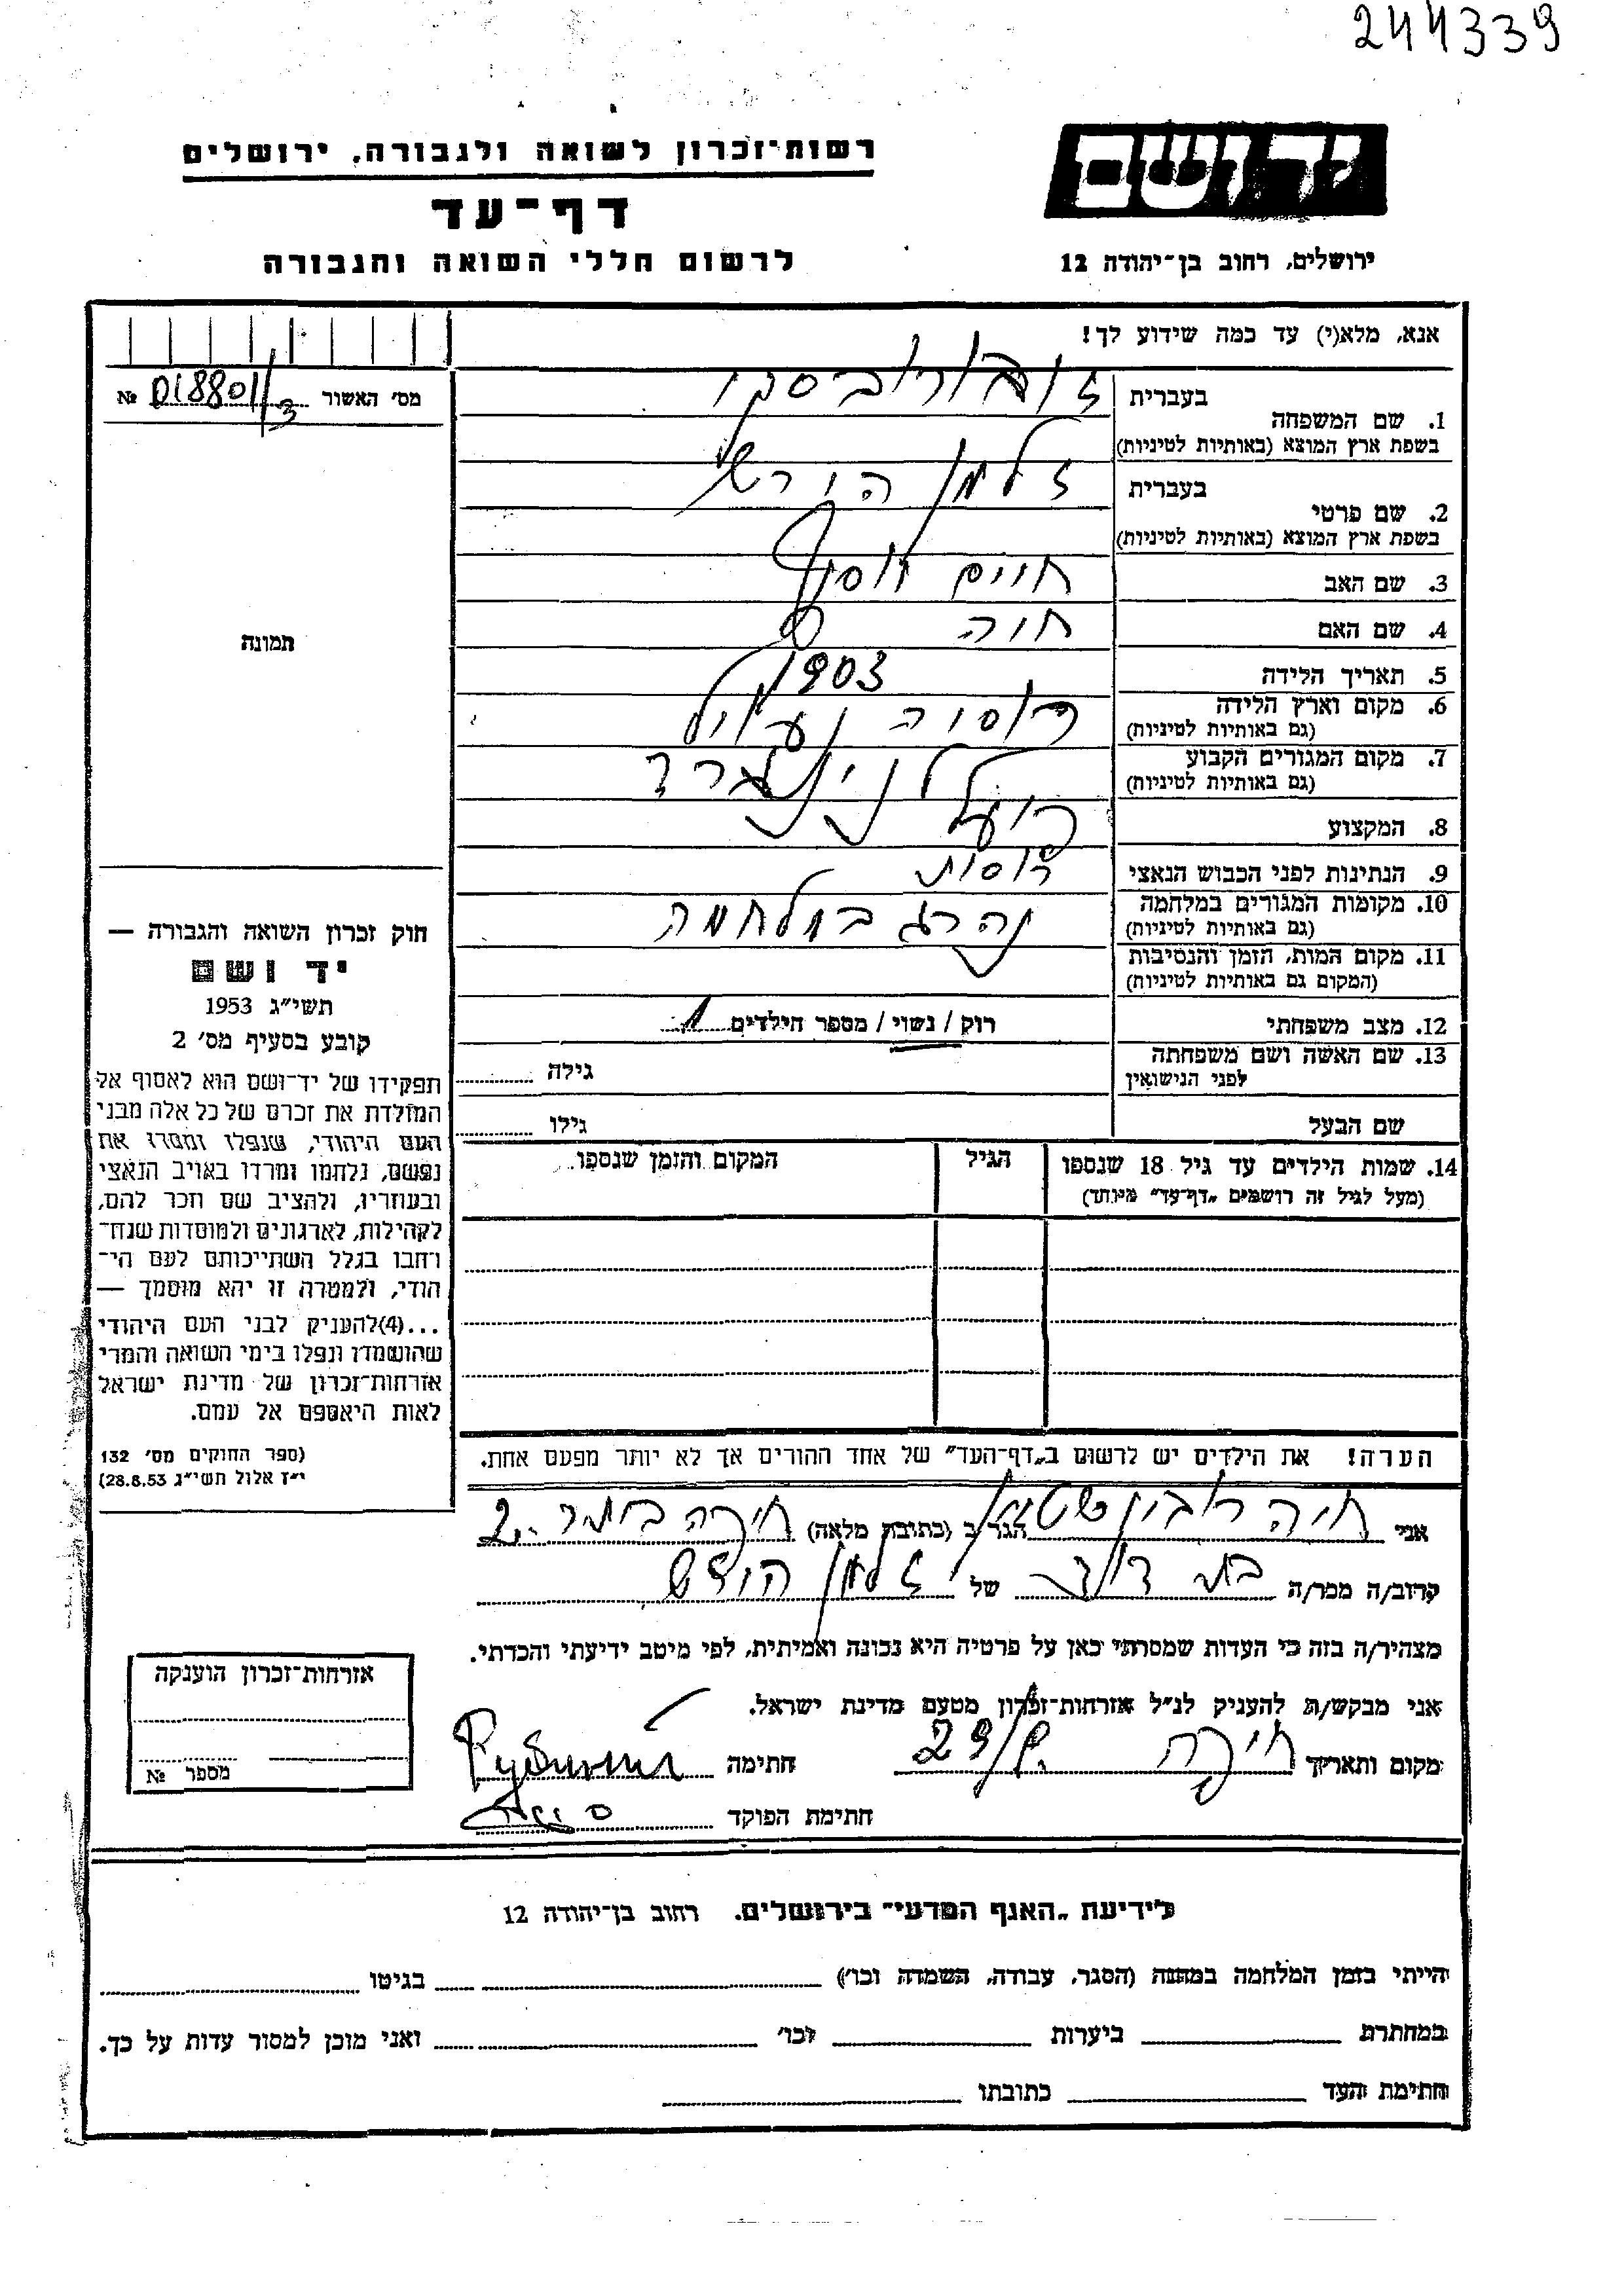 244339
יד ושם
רשות־זכרון לשואה ולגבורה, ירושלים
דף־עד
ירושלים, רחוב בן־יהודה 12
לרשום חללי השואה והגבורה
אנא, מלא(י) עד כמה שידוע לך!
מס׳ האשור № 018801/3
תמונה
1. שם המשפחה
בעברית
בשפת ארץ המוצא (באותיות לטיניות)
2. שם פרטי
בעברית זלמן הירש
בשפת ארץ המוצא (באותיות לטיניות)
3. שם האב חיים יוסף
4. שם האם חיה
5. תאריך הלידה 1903
6. מקום וארץ הלידה רוסיה
(גם באותיות לטיניות)
7. מקום המגורים הקבוע לנינגרד
(גם באותיות לטיניות)
8. המקצוע פועל
9. הנתינות לפני הכבוש הנאצי רוסית
10. מקומות המגורים במלחמה
(גם באותיות לטיניות)
11. מקום המות, הזמן והנסיבות נהרג במלחמה
(המקום גם באותיות לטיניות)
12. מצב משפחתי רוק / נשוי / מספר הילדים 1
13. שם האשה ושם משפחתה
לפני הנישואין גילה
שם הבעל גילו
14. שמות הילדים עד גיל 18 שנספו הגיל המקום והזמן שנספו
(מעל לגיל זה רושמים „דף־עד״ מיוחד)
הערה! את הילדים יש לרשום ב„דף־העד״ של אחד ההורים אך לא יותר מפעם אחת.
חוק זכרון השואה והגבורה —
יד ושם
תשי״ג 1953
קובע בסעיף מס׳ 2
תפקידו של יד־ושם הוא לאסוף אל
המולדת את זכרם של כל אלה מבני
העם היהודי, שנפלו ומסרו את
נפשם, נלחמו ומרדו באויב הנאצי
ובעוזריו, ולהציב שם וזכר להם,
לקהילות, לארגונים ולמוסדות שנח־
רחבו בגלל השתייכותם לעם הי־
הודי, ולמטרה זו יהא מוסמך —
...(4)להעניק לבני העם היהודי
שהושמדו ונפלו בימי השואה והמרי
אזרחות־זכרון של מדינת ישראל
לאות היאספם אל עמם.
(ספר החוקים מס׳ 132
י״ז אלול תשי״ג 28.8.53)
אני חיה רובינשטיין הגר ב (כתובת מלאה) חיפה
קרוב/ה מכר/ה בת דוד של זלמן הירש
מצהיר/ה בזה כי העדות שמסרתי כאן על פרטיה היא נכונה ואמיתית, לפי מיטב ידיעתי והכרתי.
אני מבקש/ת להעניק לנ״ל אזרחות־זכרון מטעם מדינת ישראל.
מקום ותאריך חיפה חתימה
חתימת הפוקד
אזרחות־זכרון הוענקה
מספר №
לידיעת „האגף המדעי״ בירושלים. רחוב בן־יהודה 12
הייתי בזמן המלחמה במחנה (הסגר, עבודה, השמדה וכו׳) בגיטו
במחתרת ביערות וכו׳ ואני מוכן למסור עדות על כך.
חתימת העד כתובתו